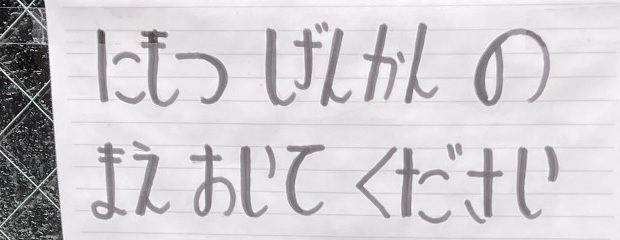 にもつ げんかん の
まえ おいて ください